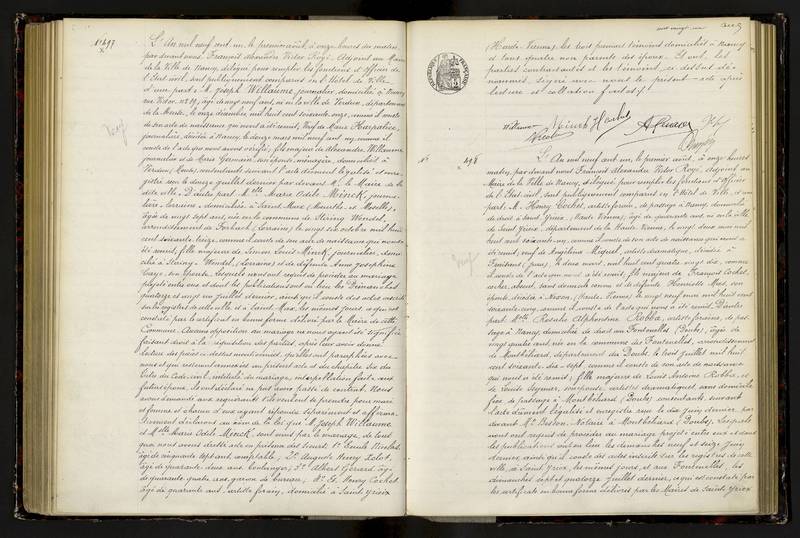 N° 497
L'An mil neuf cent un, le premier août, à onze heures du matin,
par devant nous François Alexandre Victor Royé, Adjoint au Maire
de la Ville de Nancy, délégué pour remplir les fonctions d'Officier de
l'Etat civil, sont publiquement comparus en l'Hôtel de Ville
d'une part: M. Joseph Willaume, journalier, domicilié à Nancy,
né en la ville de Verdun, département
de la Meuse, le onze décembre mil huit cent soixante onze, comme il conste
de son acte de naissance qui nous a été remis, Veuf de Marie
journalière, décédée à Nancy, le douze mars mil neuf cent un, comme il
conste de l'acte que nous avons vérifié; fils majeur de Alexandre Willaume
journalier et de Marie Germain, son épouse, ménagère, domiciliés à
Verdun (Meuse), consentants suivant l'acte dûment légalisé et enregistré
le douze juillet dernier par devant M. le Maire de la
dite ville. D'autre part Melle Marie Odile Minck, journalière,
domiciliée à Saint Max (Meurthe et Moselle),
âgée de vingt sept ans, née en la commune de Stiring Wendel,
arrondissement de Forbach (Lorraine) le vingt six octobre mil huit
cent soixante treize, comme il conste de son acte de naissance qui nous a
été remis, fille majeure de Simon Louis Minck, journalier, domicilié
à Stiring Wendel, (Lorraine) et de défunte Anne Joséphine
son épouse. Lesquels nous ont requis de procéder au mariage
projeté entre eux et dont les publications ont eu lieu les Dimanches
quatorze et vingt un juillet dernier, ainsi qu'il conste des actes inscrits
sur les registres de cette ville et à Saint Max, les mêmes jours, ce qui est
constaté par le certificat en bonne forme délivré par le Maire de cette
Commune. Aucune opposition au mariage ne nous ayant été signifiée
faisant droit à la réquisition des parties, après leur avoir donné
lecture des pièces ci-dessus mentionnées, qu'elles ont paraphées avec
nous et qui resteront annexées au présent acte et du chapitre Six du
titre du Code civil, intitulé du mariage, interpellation faite aux
futurs époux, ils ont déclaré ne pas avoir passé de contrat. Nous
avons demandé aux requérants s'ils veulent se prendre pour mari
et femme et chacun d'eux ayant répondu séparément et affirmativement
déclarons au nom de la loi que M. Joseph Willaume
et Melle Marie Odile Minck, sont unis par le mariage, de tout
quoi nous avons dressé acte en présence des sieurs 1°
âgé de cinquante sept ans, comptable; 2° Auguste Henry
âgé de quarante deux ans, boulanger; 3° Albert Gérard âgé
de quarante quatre ans, garçon de bureau; 4° Henry Cochet
âgé de quarante ans, artiste forain, domicilié à Saint Yrieix
(Haute-Vienne), les trois premiers témoins domiciliés à Nancy
et tous quatre non parents des époux. Et ont, les
parties contractantes et les témoins, ci-dessus dénommés,
signé avec nous le présent acte après
lecture et collation faites.
Willaume
N° 498
L'An mil neuf cent un, le premier août, à onze heures
du matin, par devant nous François Alexandre Victor Royé, adjoint au
Maire de la Ville de Nancy, délégué pour remplir les fonctions d'Officier
de l'Etat civil, sont publiquement comparus en l'Hôtel de Ville, d'une
part: M. Henry Cochet, artiste forain, de passage à Nancy, domicilié
de droit à Saint Yrieix, (Haute Vienne), âgé de quarante ans, né en la ville
de Saint Yrieix, département de la Haute Vienne, le vingt deux mai mil
huit cent soixante-un, comme il conste de son acte de naissance qui nous a
été remis, veuf de Angelina Miguel, artiste dramatique, décédée à
le deux avril, mil huit cent quatre vingt dix, comme
il conste de l'acte qui nous a été remis, fils majeur de François Cochet,
absent, sans domicile connu et de défunte Henriette Mas, son
épouse, décédée à Nexon, (Haute Vienne), le vingt neuf mai mil huit cent
soixante-cinq, comme il conste de l'acte qui nous a été remis. D'autre
part Melle Rosalie Alphonsine Robba, artiste foraine, de passage
à Nancy, domiciliée de droit aux Fontenelles (Doubs), âgée de
vingt quatre ans, née en la commune des Fontenelles, arrondissement
de Montbéliard, département du Doubs, le trois juillet mil huit
cent soixante-dix-sept, comme il conste de son acte de naissance
qui nous a été remis, fille majeure de Louis Antoine Robba, et
de son épouse, artistes dramatiques, sans domicile
fixe, de passage à Montbéliard (Doubs) consentants, suivant
l'acte dûment légalisé et enregistré reçu le dix juin dernier par
devant Me Besson, Notaire à Montbéliard (Doubs). Lesquels
nous ont requis de procéder au mariage projeté entre eux et dont
les publications ont eu lieu les dimanches neuf et seize juin
dernier, ainsi qu'il conste des actes inscrits sur les registres de cette
ville, à Saint Yrieix, les mêmes jours, et aux Fontenelles, les
dimanches sept et quatorze juillet dernier, ce qui est constaté par
les certificats en bonne forme délivrés par les Maires de Saint Yrieix